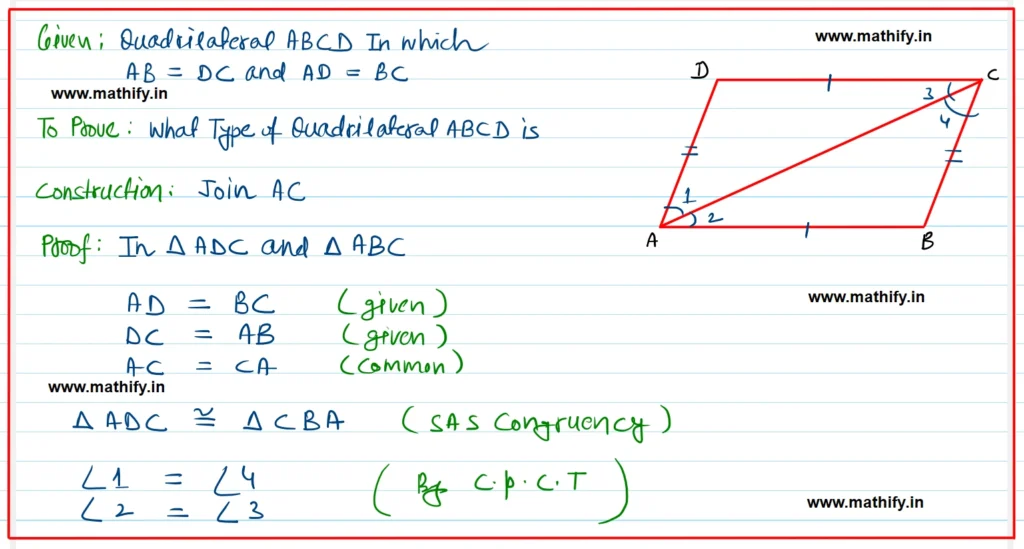 Given: Quadrilateral ABCD In which
AB = DC and AD = BC
www.mathify.in
To Prove: What Type of Quadrilateral ABCD is
Construction: Join AC
Proof: In Δ ADC and Δ ABC
AD = BC (given)
DC = AB (given)
AC = CA (common)
www.mathify.in
Δ ADC ≅ Δ CBA (SAS Congruency)
∠1 = ∠4 (By C.p.C.T)
∠2 = ∠3
www.mathify.in
D C
3
4
1
2
A B
www.mathify.in
www.mathify.in